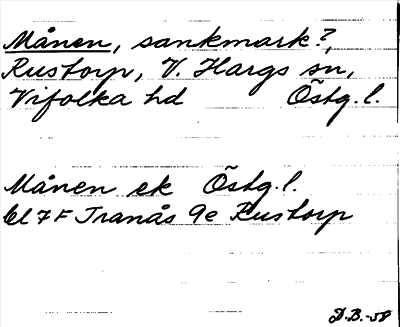 Månen, sankmark?,
Rustorp, V. Hargs sn,
Vifolka hd Östg.l.
Månen ek Östg.l.
Bl 7F Tranås 9e Rustorp
D.B.-58